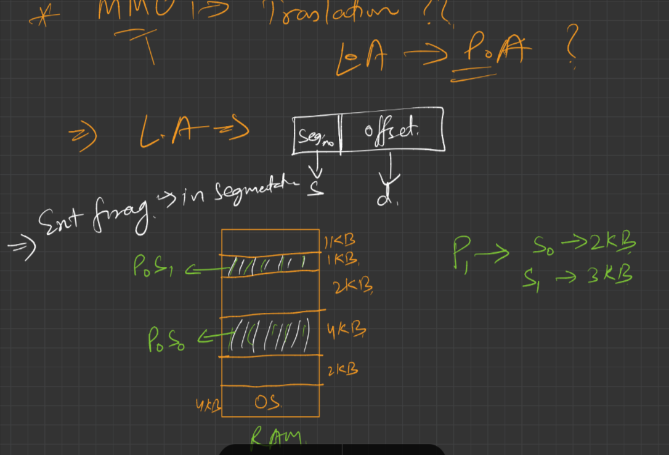 * MMU => Traslation ??
L.A → P.A ?
=> L.A => Seg no offset.
s d.
=> Ext frag. → in segmentatn
1KB
P0S1 ← 1KB.
2KB
P0S0 ← 4KB
2KB
4KB OS.
RAM.
P1 → S0 → 2KB
S1 → 3KB